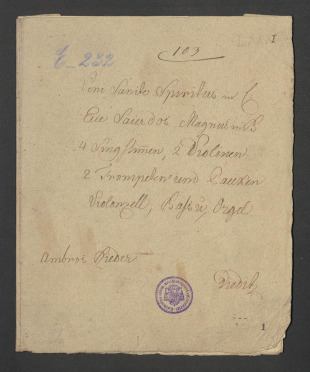 I
103
E_232
Veni Sancte Spiritus in C
Ecce Sacerdos Magnus in B
4 Singstimen, 2 Violinen
2 Trompeten und Paucken
Violonzell, Baß u Orgel
Ambros Rieder
1